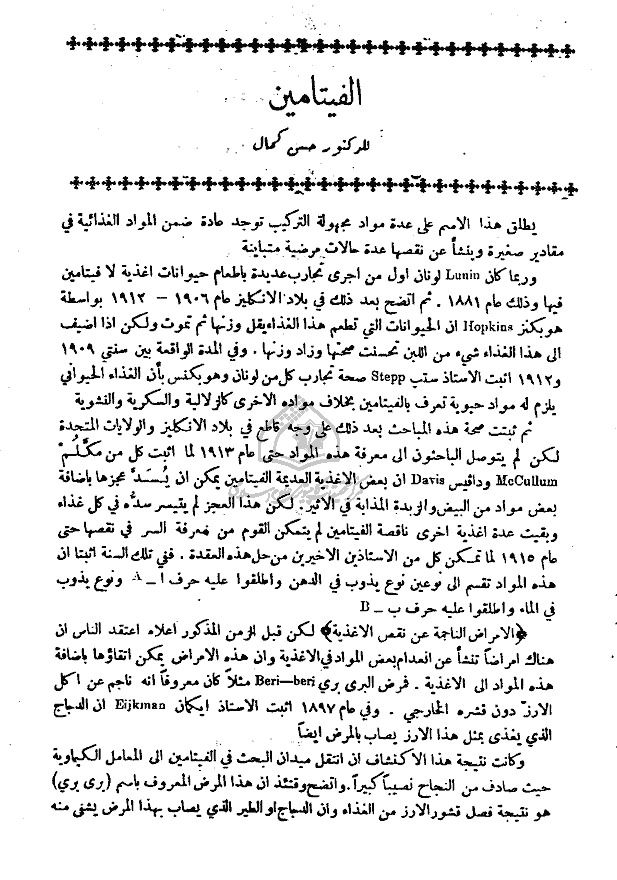 الفيتامين
للدكتور حسن كمال
يطلق هذا الاسم على عدة مواد مجهولة التركيب توجد عادة ضمن المواد الغذائية في
مقادير صغيرة وينشأ عن نقصها عدة حالات مرضية متباينة
وربما كان Lunin لونان اول من اجرى تجارب عديدة باطعام حيوانات اغذية لا فيتامين
فيها وذلك عام ١٨٨١ . ثم اتضح بعد ذلك في بلاد الانكليز عام ١٩٠٦ – ١٩١٢ بواسطة
هوبكنز Hopkins ان الحيوانات التي تطعم هذا الغذاء يقل وزنها ثم تموت ولكن اذا اضيف
الى هذا الغذاء شيء من اللبن تحسنت صحتها وزاد وزنها . وفي المدة الواقعة بين سنتي ١٩٠٩
و١٩١٢ اثبت الاستاذ ستب Stepp صحة تجارب كل من لونان وهوبكنس بأن الغذاء الحيواني
يلزم له مواد حيوية تعرف بالفيتامين بخلاف مواده الاخرى كالزلالية والسكرية والنشوية
ثم ثبتت صحة هذه المباحث بعد ذلك على وجه قاطع في بلاد الانكليز والولايات المتحدة
لكن لم يتوصل الباحثون الى معرفة هذه المواد حتى عام ١٩١٣ لما اثبت كل من مكَلُّمْ
McCullum ودائيس Davis ان بعض الاغذية العديمة الفيتامين يمكن ان يُسَدَّ عجزها باضافة
بعض مواد من البيض والزبدة المذابة في الاثير. لكن هذا العجز لم يتيسر سدُّه في كل غذاء
وبقيت عدة اغذية اخرى ناقصة الفيتامين لم يتمكن القوم من معرفة السر في نقصها حتى
عام ١٩١٥ لما تمكن كل من الاستاذين الاخيرين من حل هذه العقدة . ففي تلك السنة اثبتا ان
هذه المواد تقسم الى نوعين نوع يذوب في الدهن واطلقوا عليه حرف ا – A ونوع يذوب
في الماء واطلقوا عليه حرف ب – B
﴿الامراض الناجمة عن نقص الاغذية﴾ لكن قبل الزمن المذكور اعلاه اعتقد الناس ان
هناك امراضاً تنشأ عن انعدام بعض المواد في الاغذية وان هذه الامراض يمكن اتقاؤها باضافة
هذه المواد الى الاغذية . فمرض البرى بري Beri—beri مثلاً كان معروفاً انه ناجم عن اكل
الارزّ دون قشره الخارجي . وفي عام ١٨٩٧ اثبت الاستاذ ايكمان Eijkman ان الدجاج
الذي يغذى بمثل هذا الارز يصاب بالمرض ايضاً
وكانت نتيجة هذا الاكتشاف ان انتقل ميدان البحث في الفيتامين الى المعامل الكيماوية
حيث صادف من النجاح نصيباً كبيراً. واتضح وقتئذ ان هذا المرض المعروف باسم (برى بري)
هو نتيجة فصل قشور الارز من الغذاء وان الدجاج او الطير الذي يصاب بهذا المرض يشفى منه